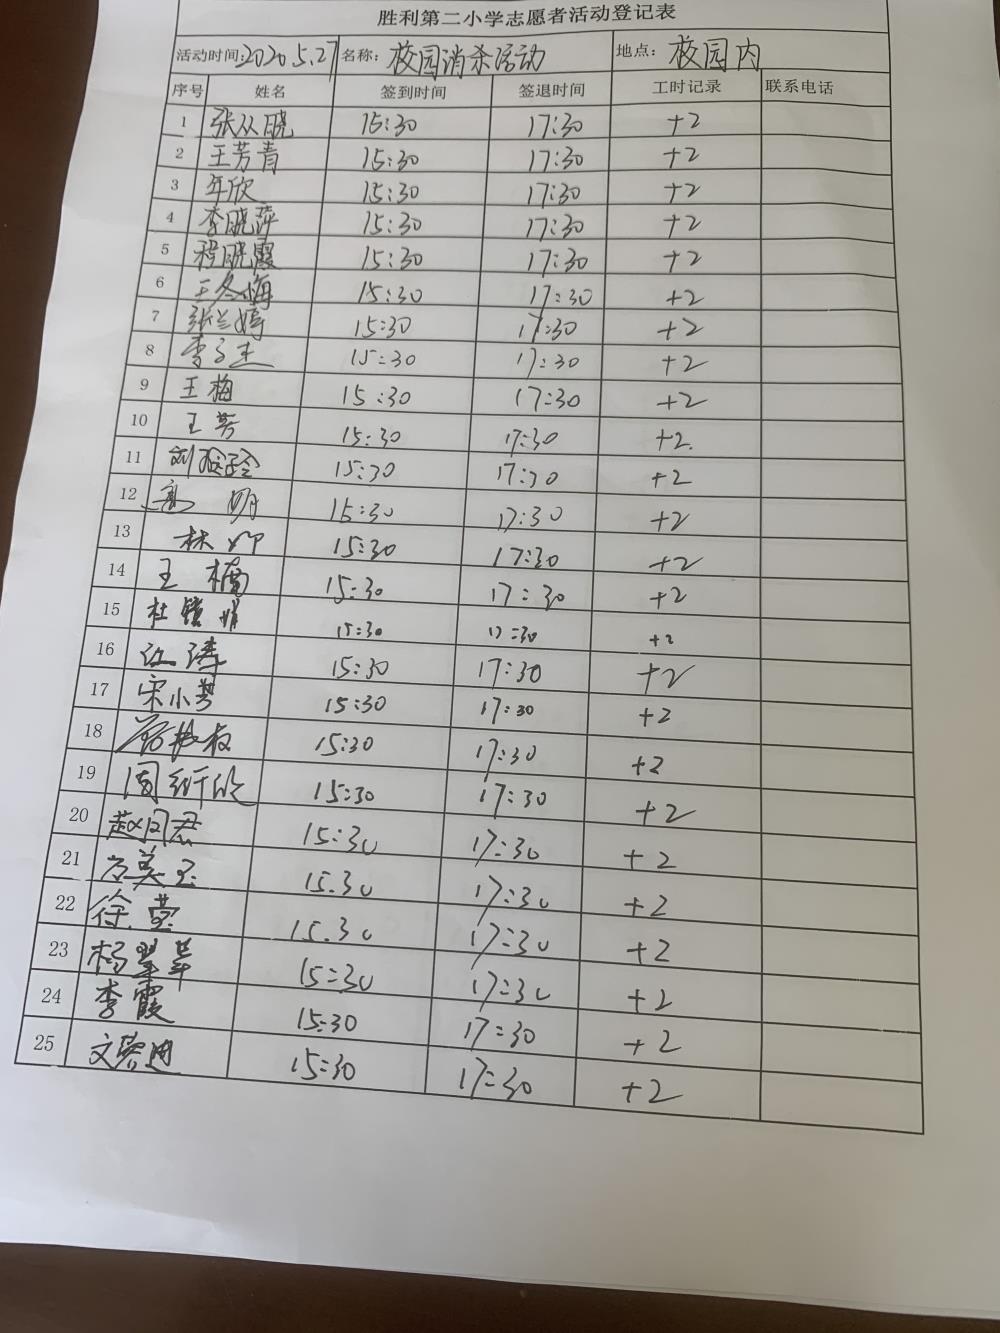 胜利第二小学志愿者活动登记表
活动时间:2020.5.27 名称: 校园消杀活动 地点: 校园内
序号 姓名 签到时间 签退时间 工时记录 联系电话
1 张从晓 15:30 17:30 +2
2 王芳青 15:30 17:30 +2
3 年欣 15:30 17:30 +2
4 李晓萍 15:30 17:30 +2
5 程晓霞 15:30 17:30 +2
6 王冬梅 15:30 17:30 +2
7 张兰婷 15:30 17:30 +2
8 李子杰 15:30 17:30 +2
9 王梅 15:30 17:30 +2
10 王芳 15:30 17:30 +2.
11 刘 15:30 17:30 +2
12 明 15:30 17:30 +2
13 林 15:30 17:30 +2
14 王楠 15:30 17:30 +2
15 杜 娟 15:30 17:30 +2
16 江涛 15:30 17:30 +2
17 宋小芳 15:30 17:30 +2
18 15:30 17:30 +2
19 周 欣 15:30 17:30 +2
20 赵 君 15:30 17:30 +2
21 美玉 15:30 17:30 +2
22 徐莹 15:30 17:30 +2
23 杨翠苹 15:30 17:30 +2
24 李霞 15:30 17:30 +2
25 文 15:30 17:30 +2